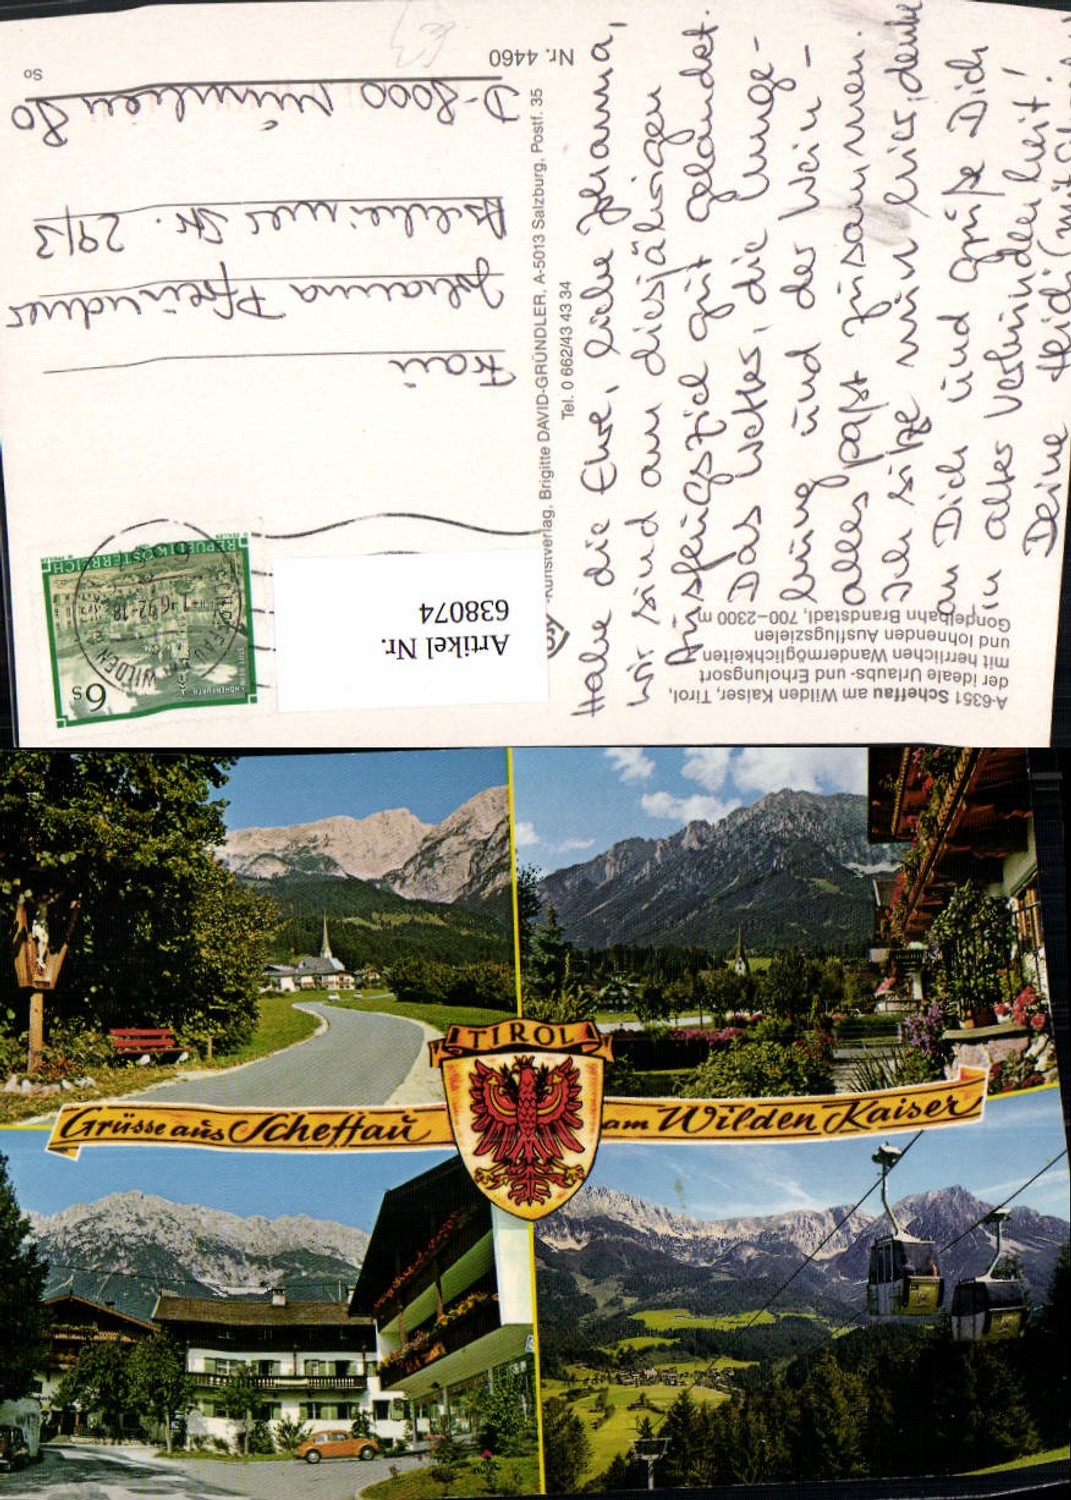 Nr. 4460
So
A-6351 Scheffau am Wilden Kaiser, Tirol,
der ideale Urlaubs- und Erholungsort
mit herrlichen Wandermöglichkeiten
und lohnenden Ausflugszielen
Gondelbahn Brandstadl, 700–2300 m
Habe die Ehre, liebe Johanna,
wir sind am diesjährigen
Ausflugsziel gut gelandet.
Das Wetter, die Umge-
bung und der Wein -
alles paßt zusammen.
Ich sitze nun hier, denke
an Dich und grüße Dich
in alter Verbundenheit!
Deine Heidi (mit
-Kunstverlag, Brigitte DAVID-GRÜNDLER, A-5013 Salzburg, Postf. 35
Tel. 0 662/43 43 34
REPUBLIK ÖSTERREICH
STIFT REIN-
HOHENFURTH
6s
WILDEN
Artikel Nr.
638074
Frau
Johanna Pfreundner
Aschheimer Str. 29/3
D-8000 München 80
TIROL
Grüsse aus Scheffau am Wilden Kaiser